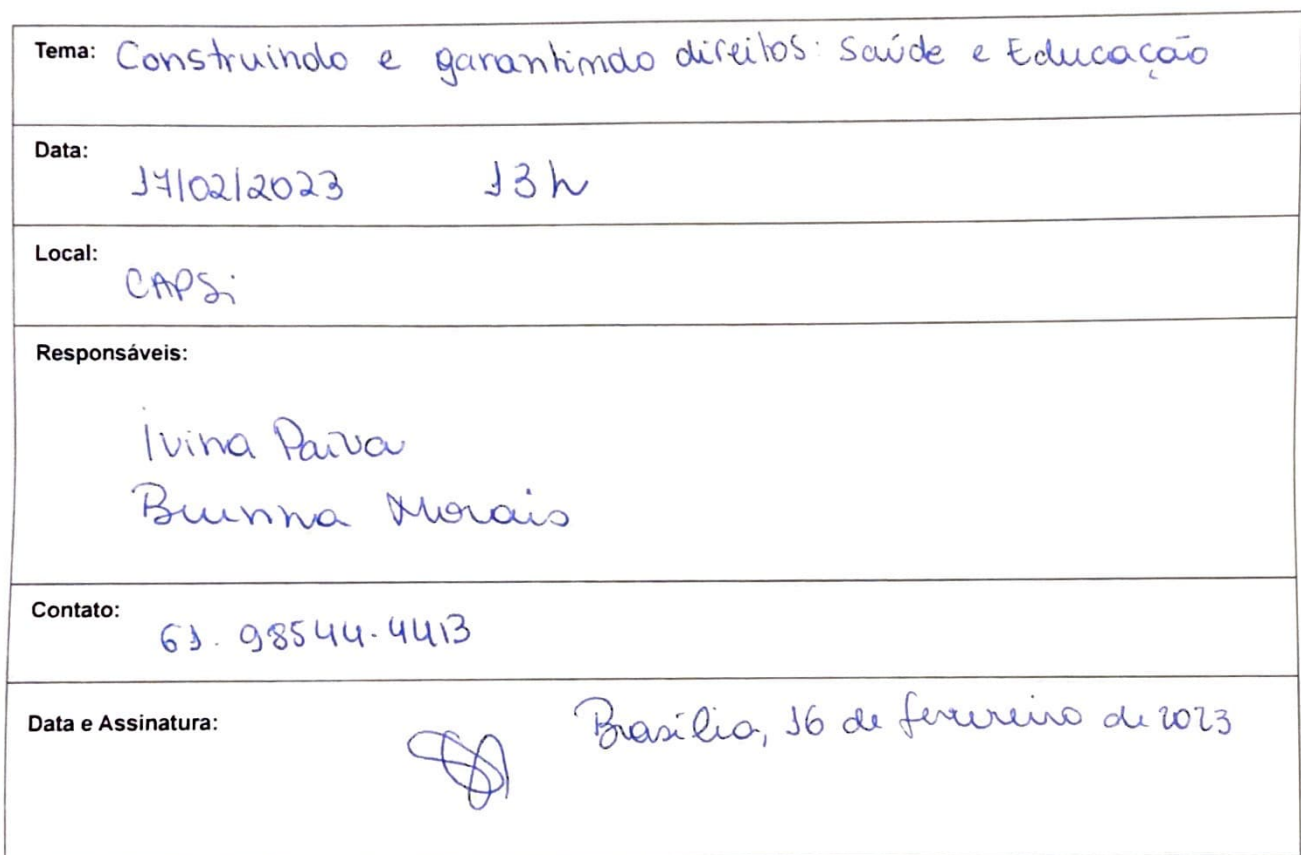 Tema: Construindo e garantindo direitos: Saúde e Educação
Data:
17/02/2023 13h
Local:
CAPSi
Responsáveis:
Ivina Paiva
Brunna Morais
Contato:
61. 98544-4413
Data e Assinatura:
Brasília, 16 de fevereiro de 2023